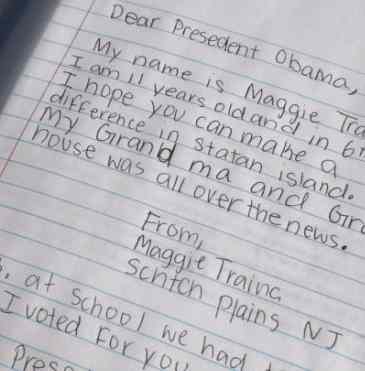 Dear Presedent Obama,
My name is Maggie Tra
I am 11 years old and in 6
I hope you can make a
difference in statan island.
My Grand ma and Gr
house was all over the news.
From,
Maggie Traina
Schtch Plains NJ
. at school we had
I voted For you
Pres